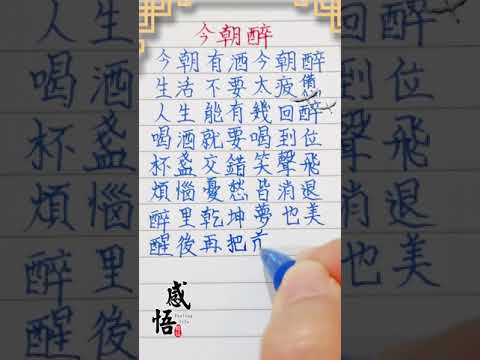 今朝醉
今朝有酒今朝醉
生活不要太疲憊
人生能有幾回醉
喝酒就要喝到位
杯盞交錯笑聲飛
煩惱憂愁皆消退
醉里乾坤夢也美
醒後再把
感悟